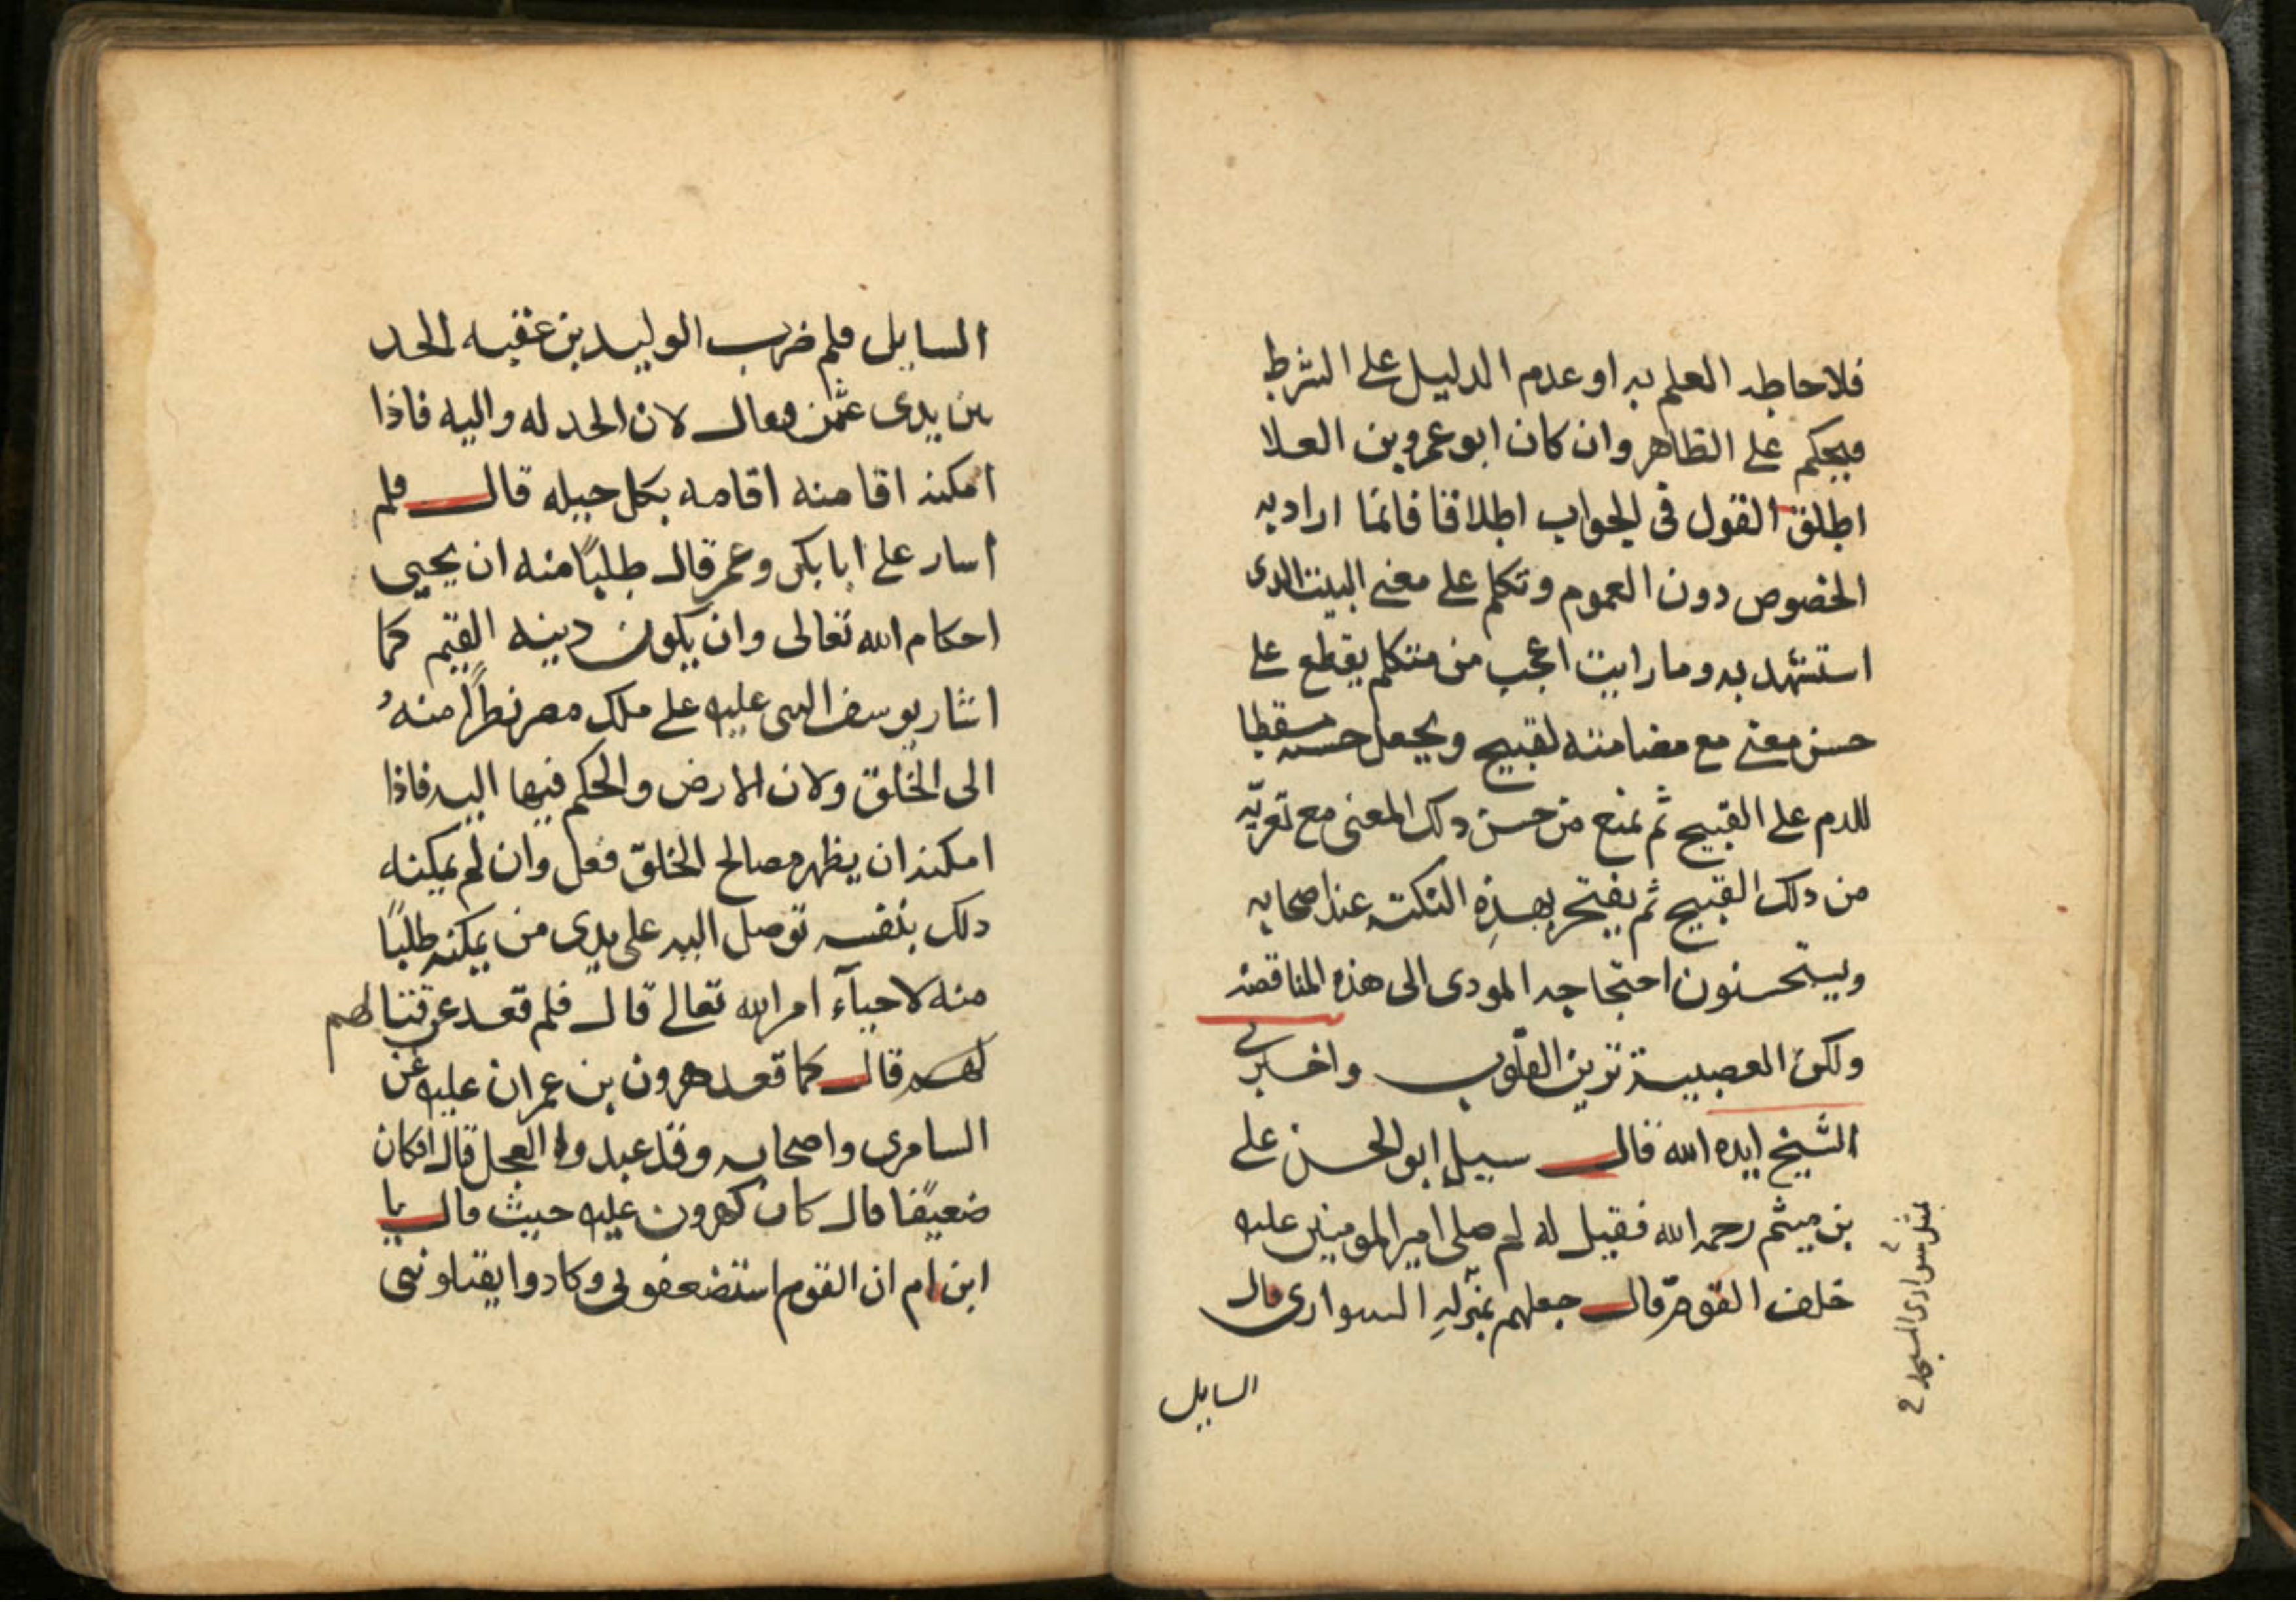 فلاحاطه العلم به او عدم الدليل على الشرط
فيحكم على الظاهر وان كان ابو عمرو بن العلا
اطلق القول فى الجواب اطلاقا فانما اراد به
الخصوص دون العموم وتكلم على معنى البيت الدى
استشهد به وما رايت اعجب من متكلم يقطع على
حسن معنى مع مضامنته لقبيح ويجعل حسنه مسقطا
للدم على القبيح ثم يمنع من حسن دلك المعنى مع تعريّه
من دلك القبيح ثم يفتخر بهذه النكتة عند اصحابه
ويستحسنون احتجاجه المودى الى هذه المناقضه
ولكن العصبية ترين القلوب واخبرنى
الشيخ ايده الله قال سيل ابو الحسن على
بن ميثم رحمه الله فقيل له لم صلى امير المومنين عليه
خلف القوم قال جعلهم بمنزله السوارى قال
السايل
بمثل سوارى المسجد
السايل فلم ضرب الوليد بن عقبه الحد
بين يدى عثمن فقال لان الحد له واليه فاذا
امكنه اقامنه اقامه بكل حيله قال فلم
اسار على ابا بكر وعمر قال طلبًا منه ان يحيى
احكام الله تعالى وان يكون دينه القيم كما
اشار يوسف النبى عليه على ملك مصر نظرًا منه
الى الخلق ولان الارض والحكم فيها اليه فاذا
امكنه ان يظهر مصالح الخلق فعل وان لم يمكنه
دلك بنفسه توصل اليه على يدى من يمكنه طلبًا
منه لاحيآء امر الله تعالى قال فلم قعد عن قتالهم
لهم قال كما قعد هرون بن عمران عليه عن
السامرى واصحابه وقد عبدوا العجل قال افكان
ضعيفًا قال كان كهرون عليه حيث قال يا
ابن ام ان القوم استضعفونى وكادوا يقتلوننى